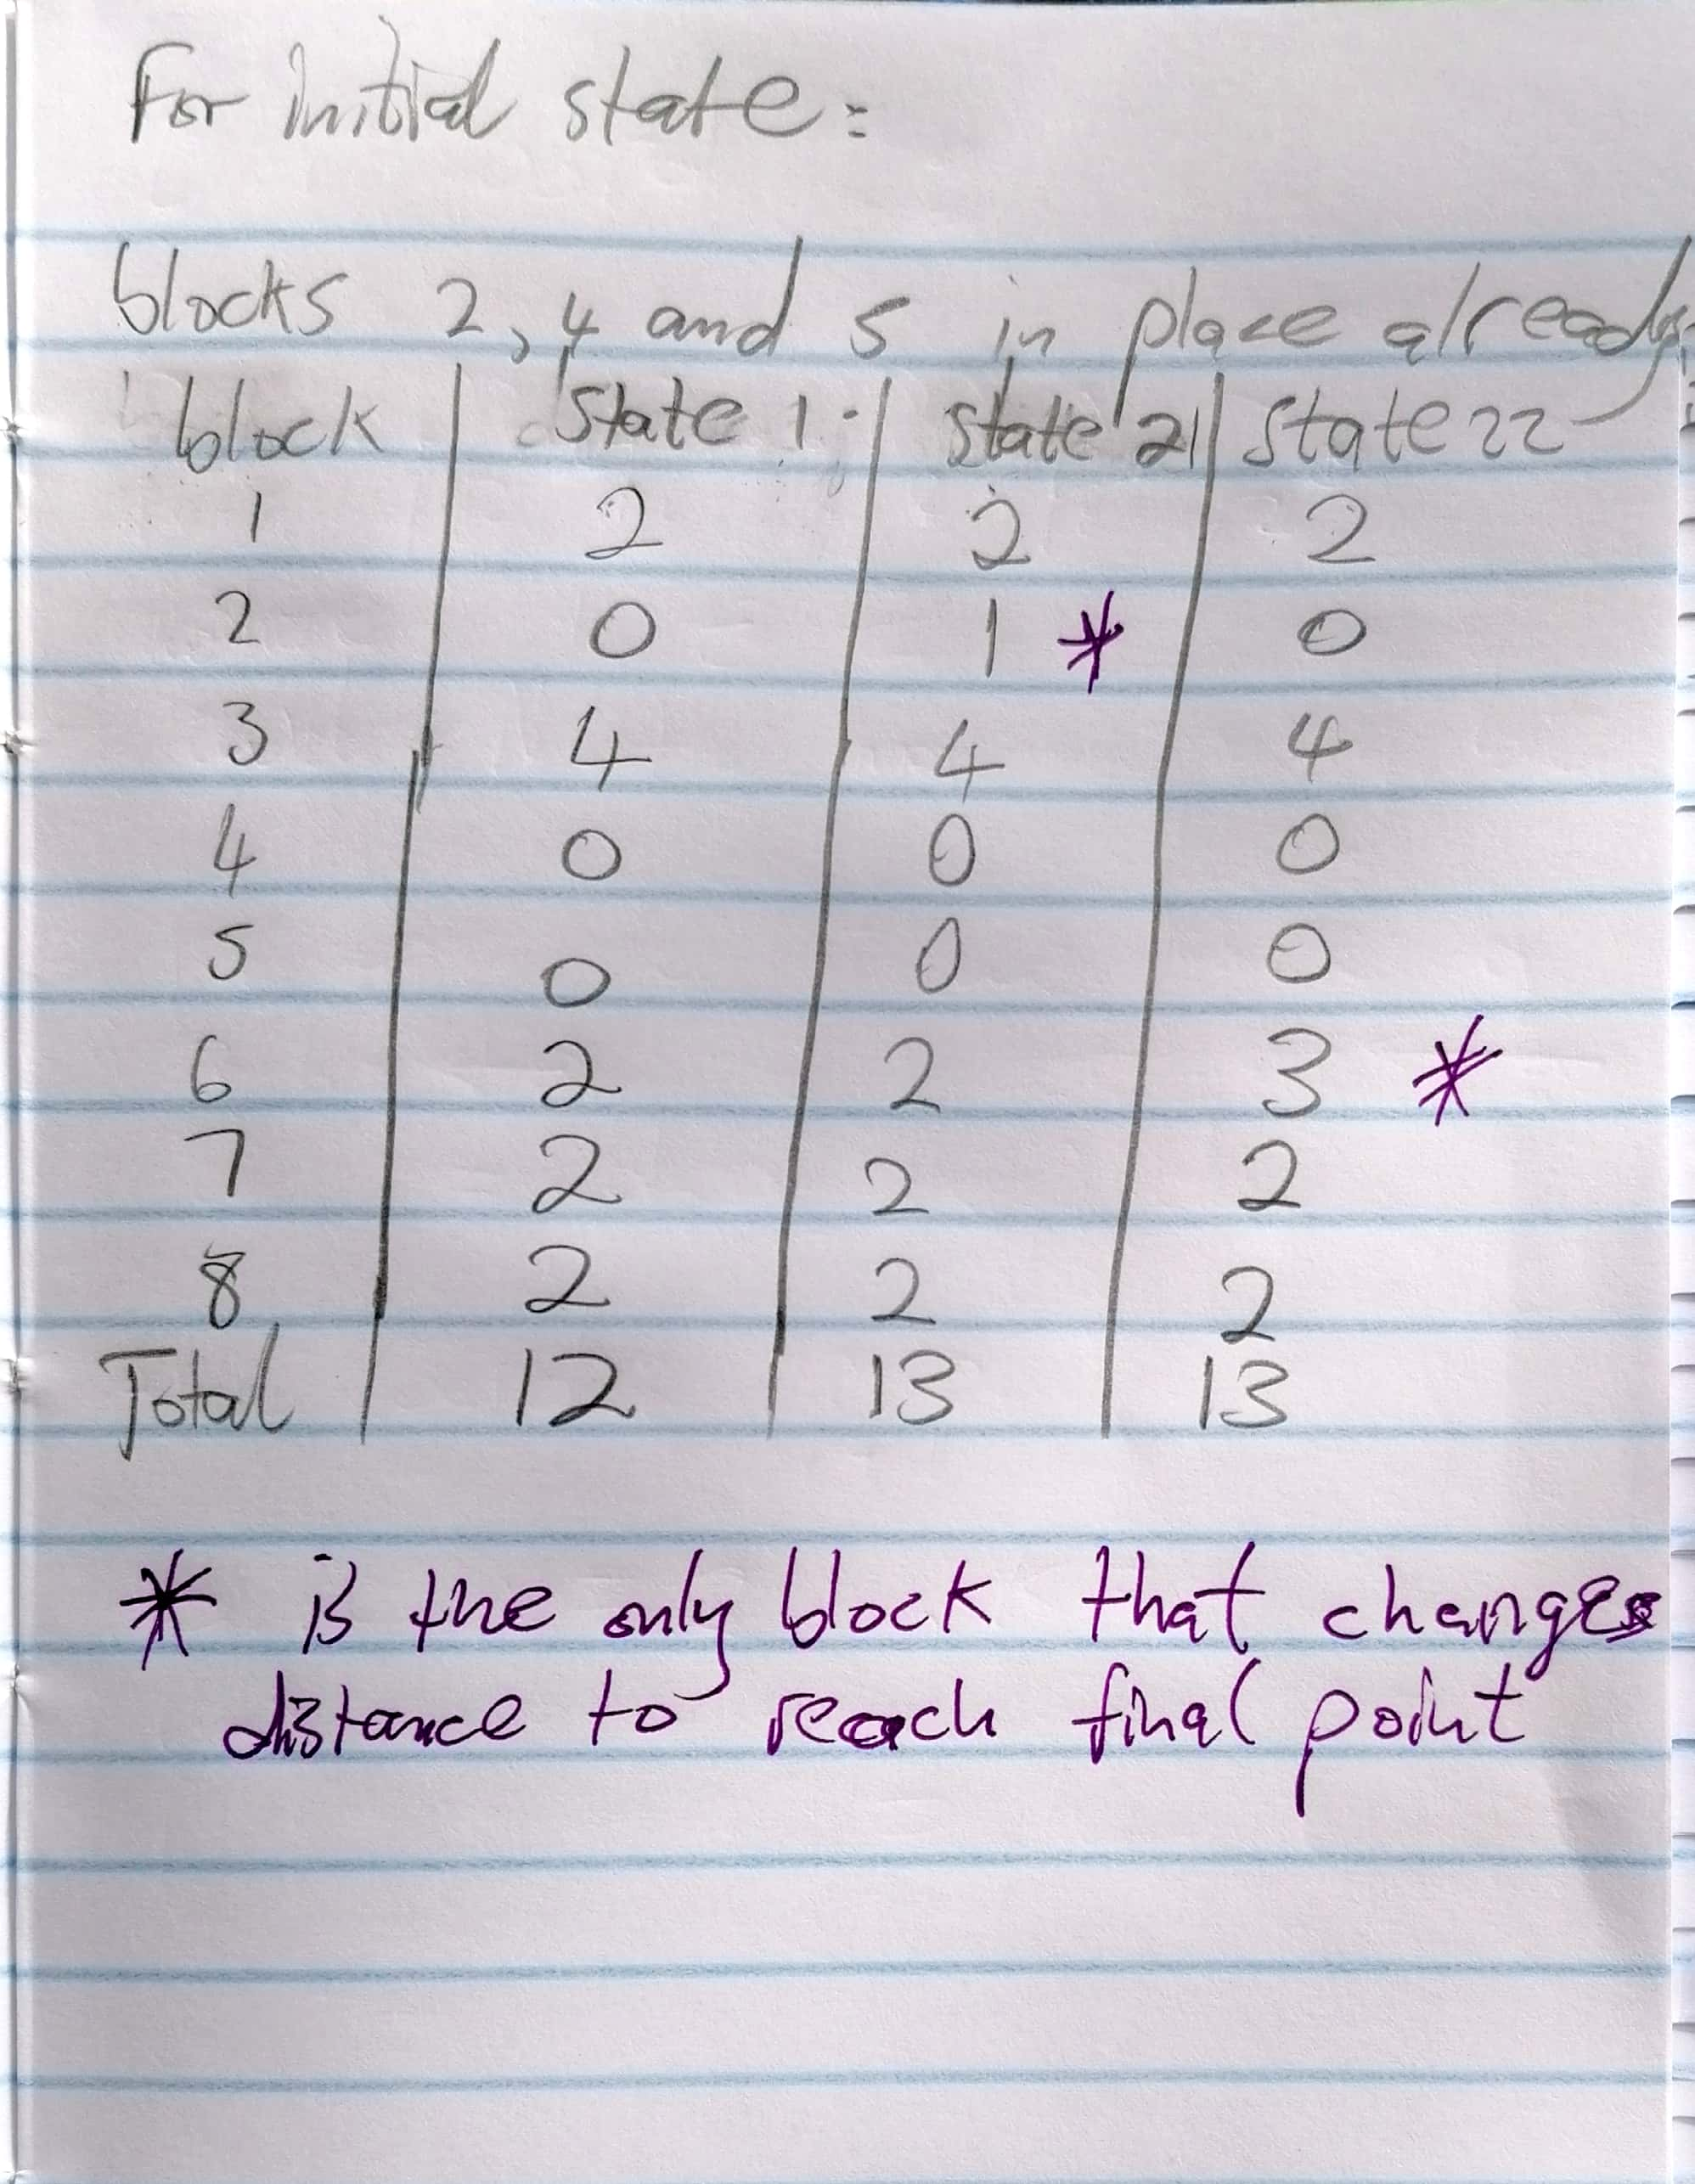 For initial state:
blocks 2, 4 and 5 in place already
block | state 1 | state 21 | state 22
1 | 2 | 2 | 2
2 | 0 | 1 * | 0
3 | 4 | 4 | 4
4 | 0 | 0 | 0
5 | 0 | 0 | 0
6 | 2 | 2 | 3 *
7 | 2 | 2 | 2
8 | 2 | 2 | 2
Total | 12 | 13 | 13
* is the only block that changes
distance to reach final point